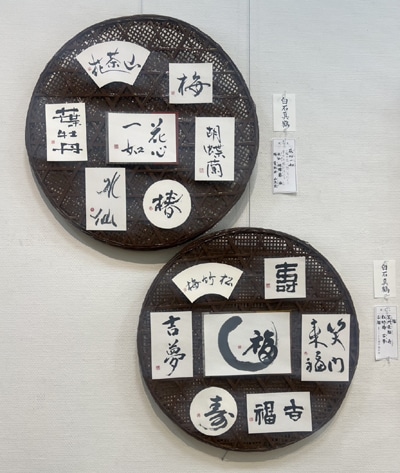 山茶花
梅
葉牡丹
花心
一如
胡蝶蘭
水仙
椿
白石真鶴
松竹梅
壽
吉夢
福
笑門
来福
寿
吉福
白石真鶴